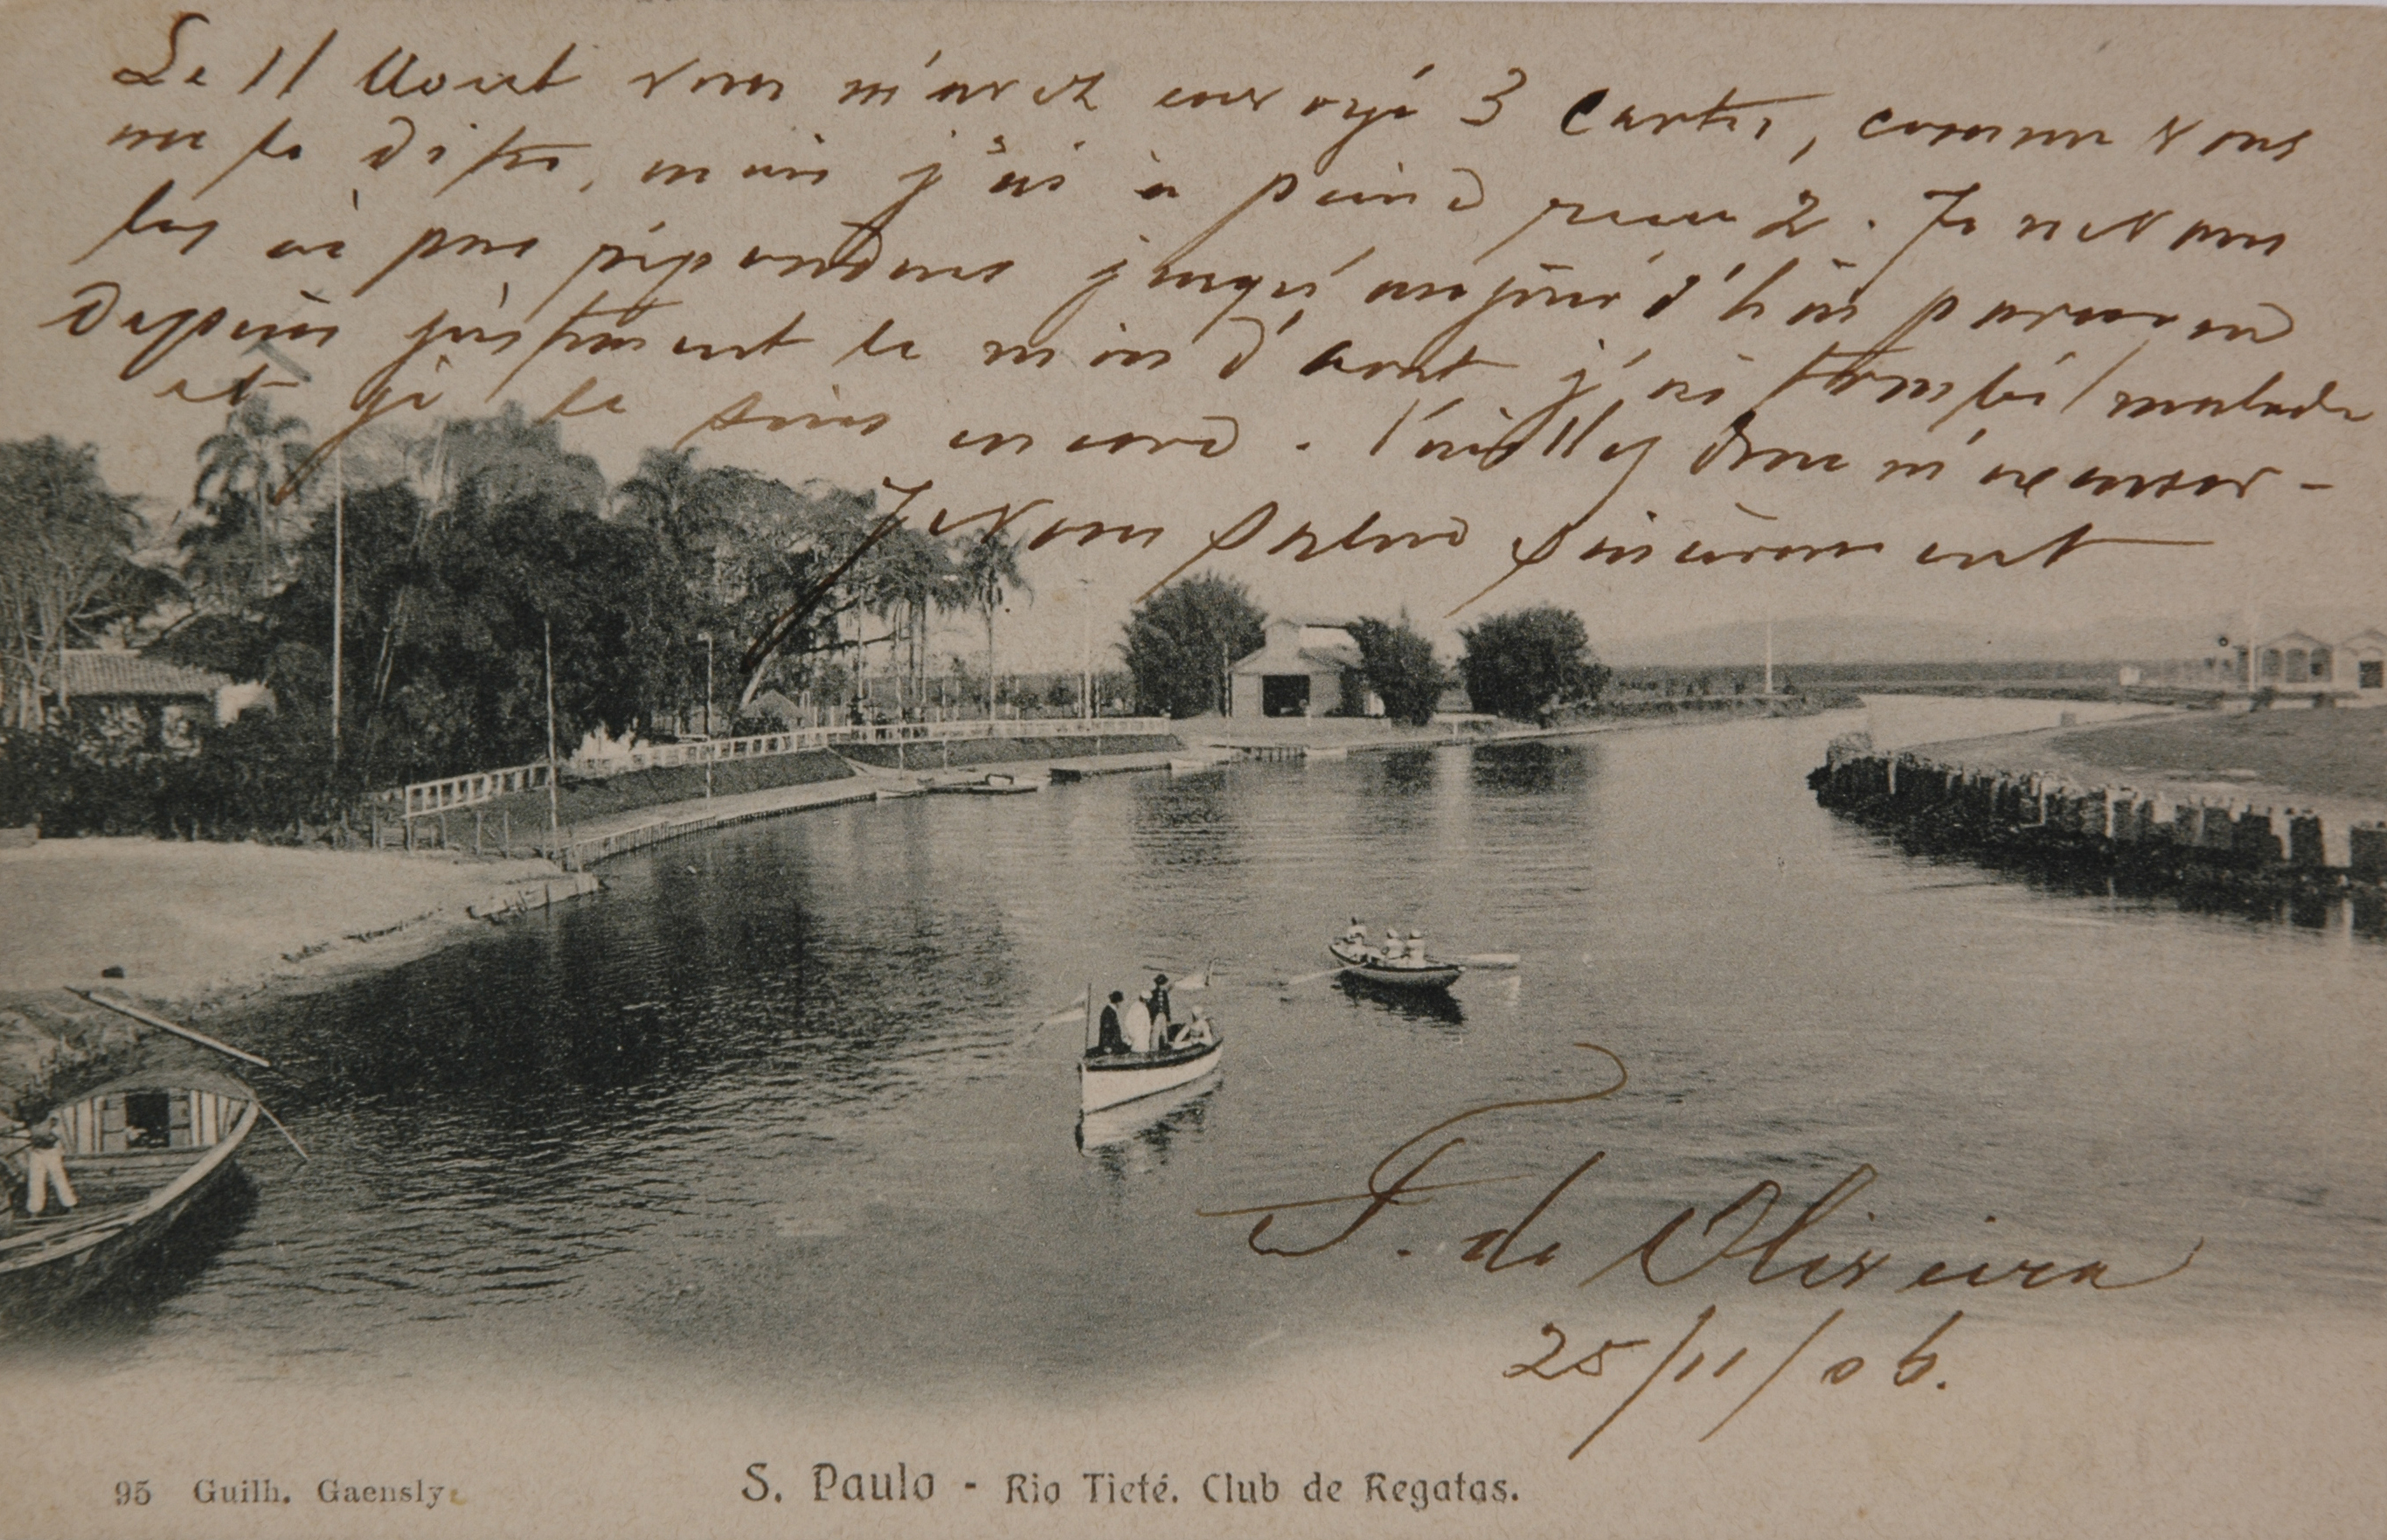 Le 11 Aout vous m'avez envoyé 3 cartes, comme vous
me le dites, mais j'ai à peine reçu 2. Je ne vous
les ai pas répondues jusqu'aujourd'hui parce que
depuis justement le mois d'aout j'ai tombé malade
et je le suis encore. Veuillez donc m'excuser -
Je vous salue sincèrement
F. de Oliveira
25/11/06.
95 Guilh. Gaensly
S. Paulo - Rio Tieté. Club de Regatas.